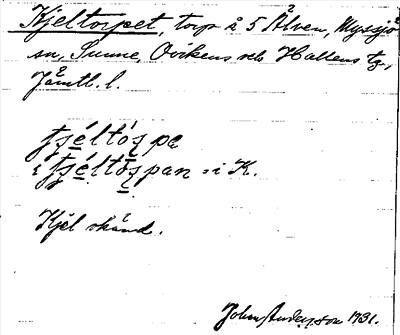 Kjeltorpet, torp å S Ålven, Myssjö
sn, Sunne, Ovikens och Hallens tg,
Jämtl. l.
tjséltòṣpa
i tjséltòṣpan = i K.
Kjel okänd.
John Anderson 1931.